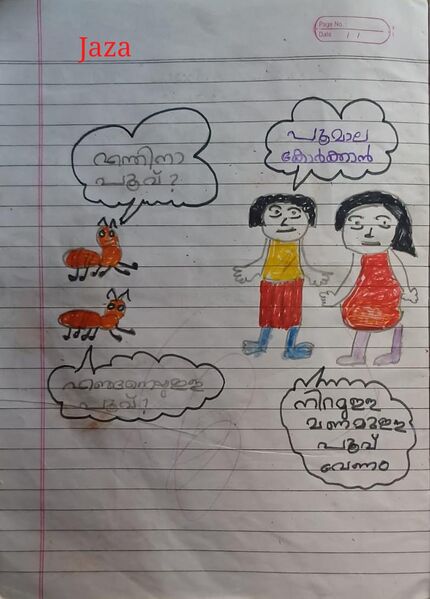 Jaza
Page No.:
Date / /
എന്തിനാ
പൂവ് ?
പൂമാല
കോർക്കാൻ
എങ്ങനെയുള്ള
പൂവ് ?
നിറമുള്ള
മണമുള്ള
പൂവ്
വേണം